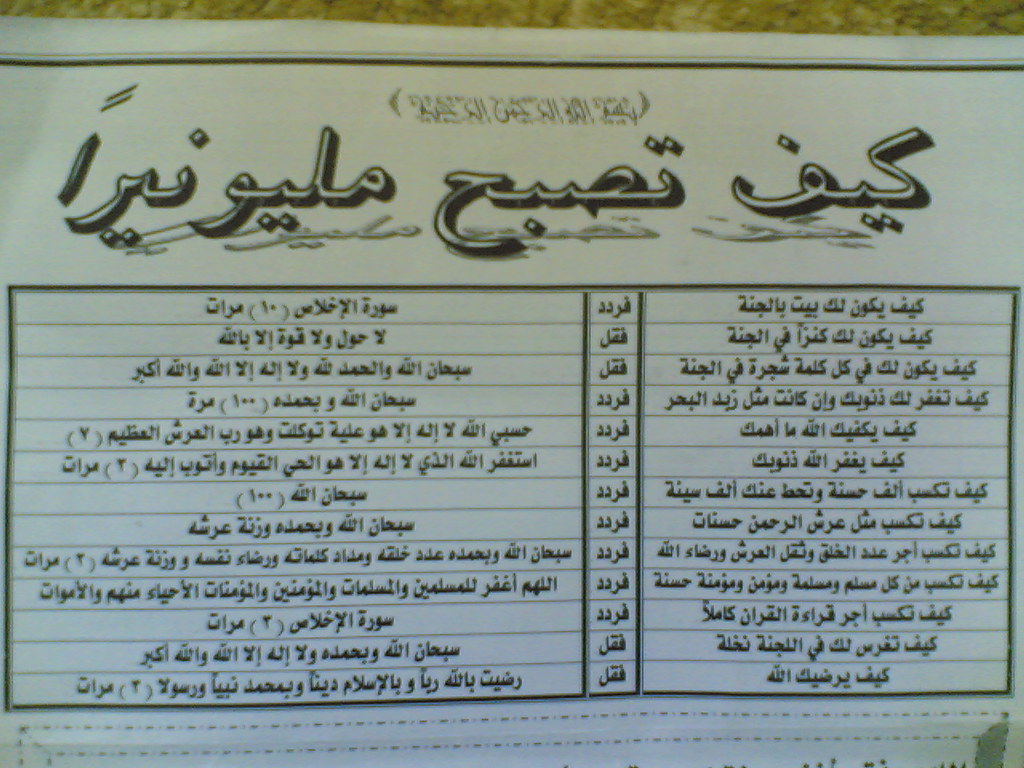 ﴿ بسم الله الرحمن الرحيم ﴾
كيف تصبح مليونيرًا
كيف يكون لك بيت بالجنة فردد سورة الإخلاص (١٠) مرات
كيف يكون لك كنزاً في الجنة فقل لا حول ولا قوة إلا بالله
كيف يكون لك في كل كلمة شجرة في الجنة فقل سبحان الله والحمد لله ولا إله إلا الله والله أكبر
كيف تغفر لك ذنوبك وإن كانت مثل زبد البحر فردد سبحان الله و بحمده (١٠٠) مرة
كيف يكفيك الله ما أهمك فردد حسبي الله لا إله إلا هو علية توكلت وهو رب العرش العظيم (٧)
كيف يغفر الله ذنوبك فردد استغفر الله الذي لا إله إلا هو الحي القيوم وأتوب إليه (٣) مرات
كيف تكسب ألف حسنة وتحط عنك ألف سيئة فردد سبحان الله (١٠٠)
كيف تكسب مثل عرش الرحمن حسنات فردد سبحان الله وبحمده وزنة عرشه
كيف تكسب أجر عدد الخلق وثقل العرش ورضاء الله فردد سبحان الله وبحمده عدد خلقه ومداد كلماته ورضاء نفسه و وزنة عرشه (٣) مرات
كيف تكسب من كل مسلم ومسلمة ومؤمن ومؤمنة حسنة فردد اللهم أغفر للمسلمين والمسلمات والمؤمنين والمؤمنات الأحياء منهم والأموات
كيف تكسب أجر قراءة القران كاملاً فردد سورة الإخلاص (٣) مرات
كيف تغرس لك في اللجنة نخلة فقل سبحان الله وبحمده ولا إله إلا الله والله أكبر
كيف يرضيك الله فقل رضيت بالله رباً و بالإسلام ديناً وبمحمد نبياً ورسولا (٣) مرات